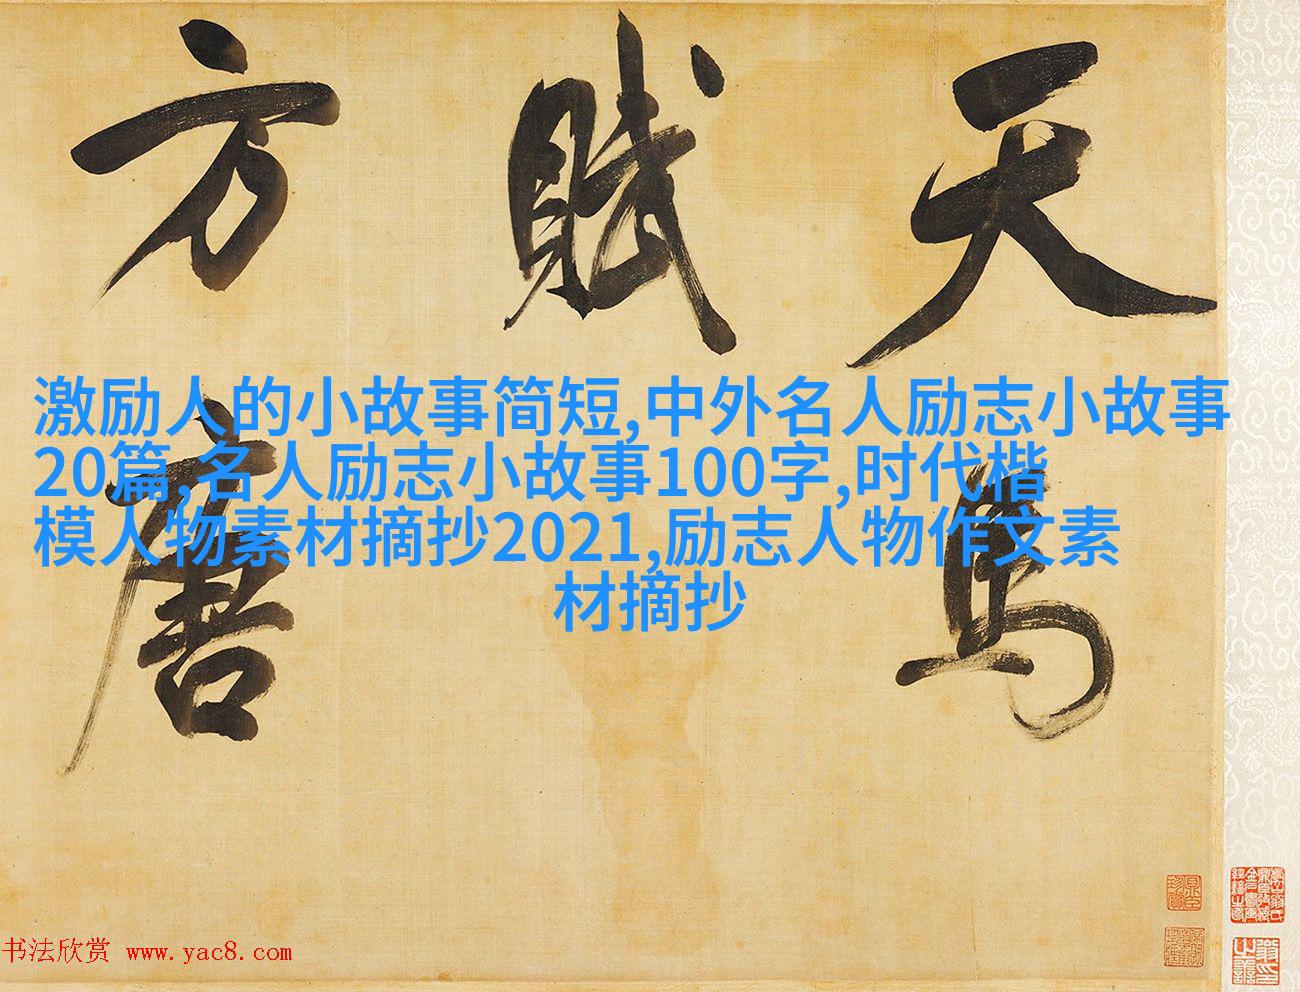 天馬
賦
方唐
激励人的小故事简短,中外名人励志小故事
20篇,名人励志小故事100字,时代楷
模人物素材摘抄2021,励志人物作文素
材摘抄
书法欣赏 www.yac8.com